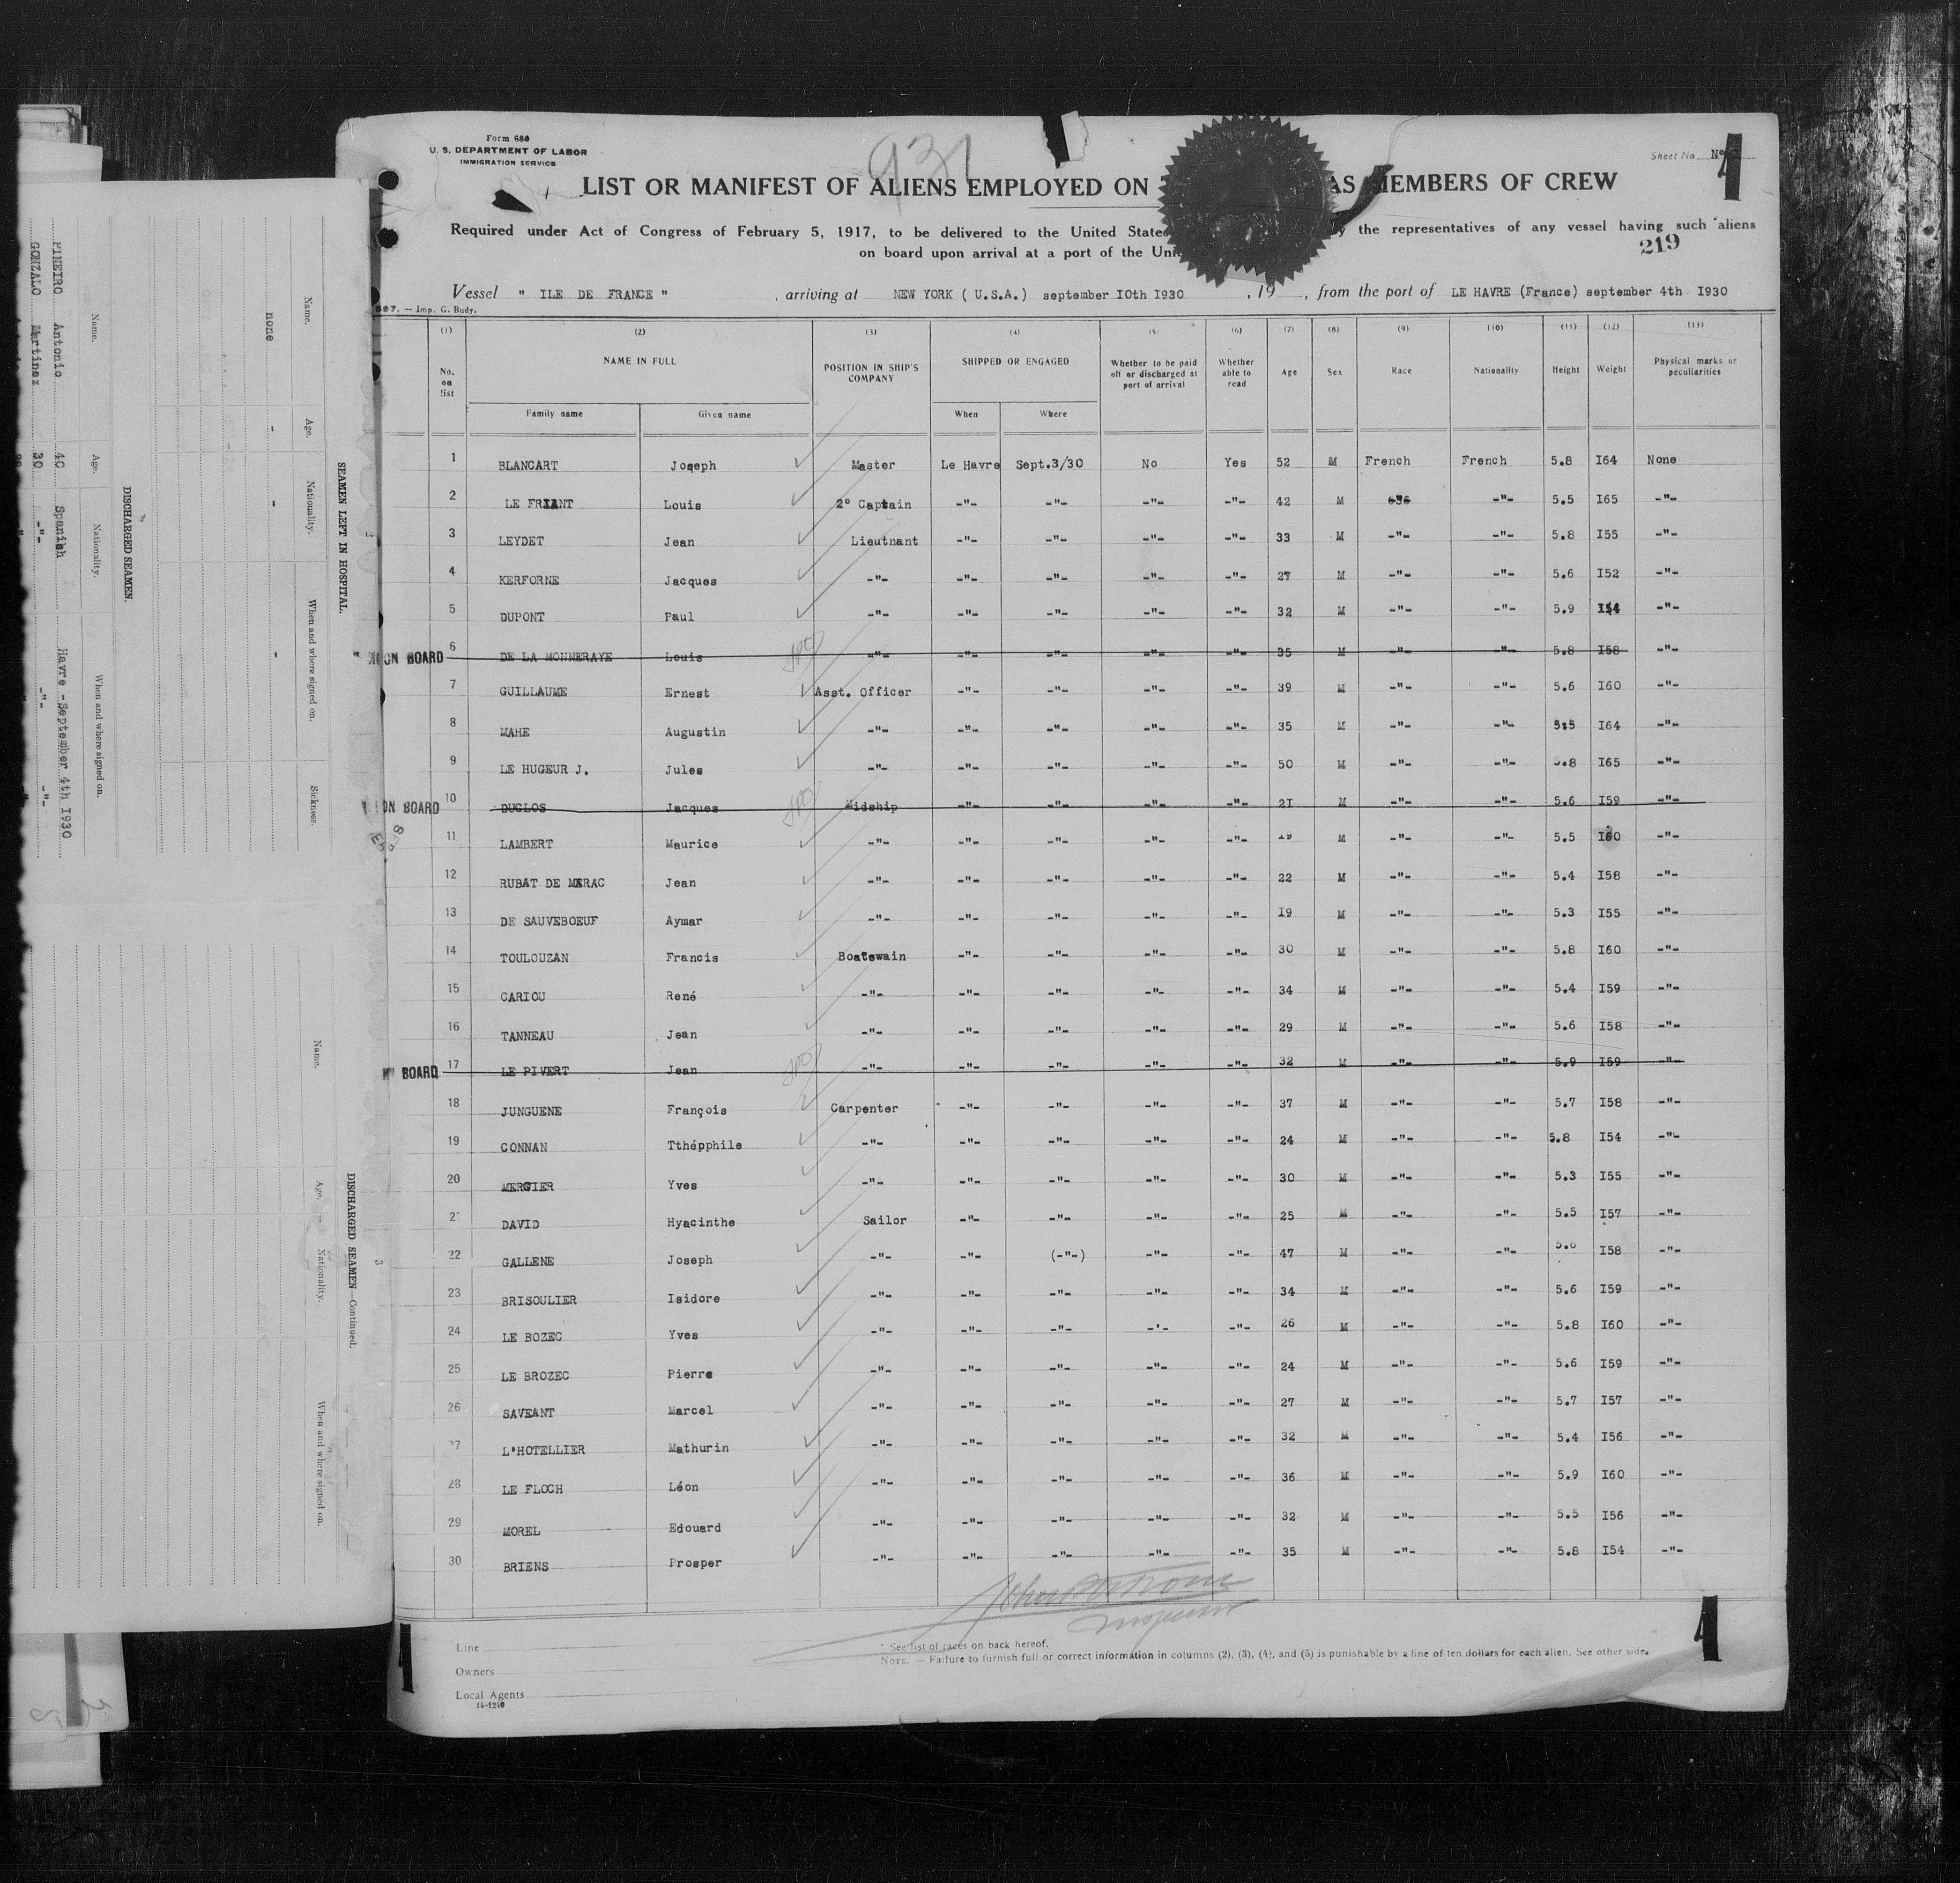 Form 680
U. S. DEPARTMENT OF LABOR
IMMIGRATION SERVICE
931
Sheet No. Nº
LIST OR MANIFEST OF ALIENS EMPLOYED ON AS MEMBERS OF CREW
Required under Act of Congress of February 5, 1917, to be delivered to the United State the representatives of any vessel having such aliens
on board upon arrival at a port of the
219
Vessel " ILE DE FRANCE " , arriving at NEW YORK ( U.S.A.) september IOth I930 , 19 , from the port of LE HAVRE (France) september 4th I930
— Imp. G. Budy.
(1) (2) (3) (4) (5) (6) (7) (8) (9) (10) (11) (12) (13)
No. on list NAME IN FULL POSITION IN SHIP'S COMPANY SHIPPED OR ENGAGED Whether to be paid off or discharged at port of arrival Whether able to read Age Sex Race Nationality Height Weight Physical marks or peculiarities
Family name Given name When Where
1 BLANCART Joseph Master Le Havre Sept.3/30 No Yes 52 M French French 5.8 I64 None
2 LE FRIANT Louis 2° Captain -"- -"- -"- -"- 42 M -"- 5.5 I65 -"-
3 LEYDET Jean Lieutnant -"- -"- -"- -"- 33 M -"- -"- 5.8 I55 -"-
4 KERFORNE Jacques -"- -"- -"- -"- -"- 27 M -"- -"- 5.6 I52 -"-
5 DUPONT Paul -"- -"- -"- -"- -"- 32 M -"- -"- 5.9 I54 -"-
ON BOARD 6 DE LA MONNERAYE Louis -"- -"- -"- -"- -"- 35 M -"- -"- 5.8 I58 -"-
7 GUILLAUME Ernest Asst. Officer -"- -"- -"- -"- 39 M -"- -"- 5.6 I60 -"-
8 MAHE Augustin -"- -"- -"- -"- -"- 35 M -"- -"- 5.5 I64 -"-
9 LE HUGEUR J. Jules -"- -"- -"- -"- -"- 50 M -"- -"- 5.8 I65 -"-
ON BOARD 10 DUCLOS Jacques Midship -"- -"- -"- -"- 2I M -"- -"- 5.6 I59 -"-
11 LAMBERT Maurice -"- -"- -"- -"- -"- I9 M -"- -"- 5.5 I60 -"-
12 RUBAT DE MERAC Jean -"- -"- -"- -"- -"- 22 M -"- -"- 5.4 I58 -"-
13 DE SAUVEBOEUF Aymar -"- -"- -"- -"- -"- I9 M -"- -"- 5.3 I55 -"-
14 TOULOUZAN Francis Boatswain -"- -"- -"- -"- 30 M -"- -"- 5.8 I60 -"-
15 CARIOU René -"- -"- -"- -"- -"- 34 M -"- -"- 5.4 I59 -"-
16 TANNEAU Jean -"- -"- -"- -"- -"- 29 M -"- -"- 5.6 I58 -"-
BOARD 17 LE PIVERT Jean -"- -"- -"- -"- -"- 32 M -"- -"- 5.9 I59 -"-
18 JUNGUENE François Carpenter -"- -"- -"- -"- 37 M -"- -"- 5.7 I58 -"-
19 CONNAN Tthépphile -"- -"- -"- -"- -"- 24 M -"- -"- 5.8 I54 -"-
20 MERCIER Yves -"- -"- -"- -"- -"- 30 M -"- -"- 5.3 I55 -"-
21 DAVID Hyacinthe Sailor -"- -"- -"- -"- 25 M -"- -"- 5.5 I57 -"-
22 GALLENE Joseph -"- -"- (-"-) -"- -"- 47 M -"- -"- I58 -"-
23 BRISOULIER Isidore -"- -"- -"- -"- -"- 34 M -"- -"- 5.6 I59 -"-
24 LE BOZEC Yves -"- -"- -"- -'- -"- 26 M -"- -"- 5.8 I60 -"-
25 LE BROZEC Pierre -"- -"- -"- -"- -"- 24 M -"- -"- 5.6 I59 -"-
26 SAVEANT Marcel -"- -"- -"- -"- -"- 27 M -"- -"- 5.7 I57 -"-
27 L'HOTELLIER Mathurin -"- -"- -"- -"- -"- 32 M -"- -"- 5.4 I56 -"-
28 LE FLOCH Léon -"- -"- -"- -"- -"- 36 M -"- -"- 5.9 I60 -"-
29 MOREL Edouard -"- -"- -"- -"- -"- 32 M -"- -"- 5.5 I56 -"-
30 BRIENS Prosper -"- -"- -"- -"- -"- 35 M -"- -"- 5.8 I54 -"-
Line
Owners
Local Agents
14-1240
* See list of races on back hereof.
NOTE. — Failure to furnish full or correct information in columns (2), (3), (4), and (5) is punishable by a fine of ten dollars for each alien. See other side.
SEAMEN LEFT IN HOSPITAL.
Name. Age. Nationality. When and where signed on. Sickness.
none - - -
DISCHARGED SEAMEN.
Name. Age. Nationality. When and where signed on.
PINEIRO Antonio 40 Spanish Havre - September 4th I930
GONZALO Martinez 30 -"- -"- -"-
DISCHARGED SEAMEN—Continued.
Name. Age. Nationality. When and where signed on.
3